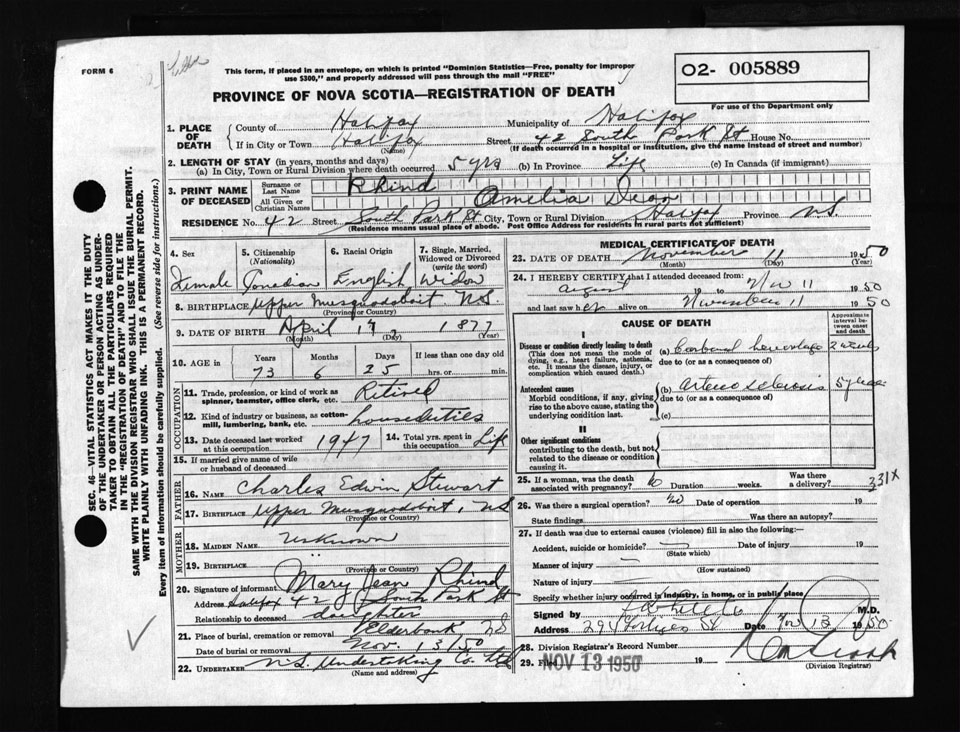 FORM 6
This form, if placed in an envelope, on which is printed "Dominion Statistics—Free, penalty for improper
use $300," and properly addressed will pass through the mail "FREE"
O2- 005889
PROVINCE OF NOVA SCOTIA—REGISTRATION OF DEATH
For use of the Department only
1. PLACE OF DEATH
County of Halifax Municipality of Halifax
If in City or Town Halifax Street 42 South Park St House No.
(Name) (If death occurred in a hospital or institution, give the name instead of street and number)
2. LENGTH OF STAY (in years, months and days)
(a) In City, Town or Rural Division where death occurred 5 yrs (b) In Province Life (c) In Canada (if immigrant)
3. PRINT NAME OF DECEASED
Surname or Last Name Rhind
All Given or Christian Names Amelia
RESIDENCE No. 42 Street South Park St City, Town or Rural Division Halifax Province N.S.
(Residence means usual place of abode. Post Office Address for residents in rural parts not sufficient)
4. Sex Female
5. Citizenship (Nationality) Canadian
6. Racial Origin English
7. Single, Married, Widowed or Divorced (write the word) Widow
8. BIRTHPLACE Upper Musquodoboit N.S.
(Province or Country)
9. DATE OF BIRTH April 17 1877
(Month) (Day) (Year)
10. AGE in Years Months Days If less than one day old
73 6 25 hrs. or min.
OCCUPATION
11. Trade, profession, or kind of work as spinner, teamster, office clerk, etc. Retired
12. Kind of industry or business, as cotton-mill, lumbering, bank, etc. house duties
13. Date deceased last worked at this occupation 1947
14. Total yrs. spent in this occupation Life
15. If married give name of wife or husband of deceased
FATHER
16. NAME Charles Edwin Stewart
17. BIRTHPLACE Upper Musquodoboit, N.S.
(Province or Country)
MOTHER
18. MAIDEN NAME Unknown
19. BIRTHPLACE
(Province or Country)
20. Signature of informant Mary Jean Rhind
Address Halifax 42 South Park St
Relationship to deceased daughter
21. Place of burial, cremation or removal Elderbank N.S.
Date of burial or removal Nov. 13/50
22. UNDERTAKER N.S. Undertaking Co. Ltd
(Name and address)
MEDICAL CERTIFICATE OF DEATH
23. DATE OF DEATH November 11 1950
(Month) (Day) (Year)
24. I HEREBY CERTIFY that I attended deceased from:
August 19 to Nov 11 1950
and last saw her alive on November 11 1950
CAUSE OF DEATH
Approximate interval between onset and death
I
Disease or condition directly leading to death
(This does not mean the mode of dying, e.g., heart failure, asthenia, etc. It means the disease, injury, or complication which caused death.)
(a) hemorrhage 2 weeks
due to (or as a consequence of)
Antecedent causes
Morbid conditions, if any, giving rise to the above cause, stating the underlying condition last.
(b) arterio sclerosis 5 years
due to (or as a consequence of)
(c)
II
Other significant conditions
contributing to the death, but not related to the disease or condition causing it.
25. If a woman, was the death associated with pregnancy? No Duration weeks. Was there a delivery?
331X
26. Was there a surgical operation? No Date of operation 19
State findings Was there an autopsy?
27. If death was due to external causes (violence) fill in also the following:
Accident, suicide or homicide? — Date of injury 19
(State which)
Manner of injury —
(How sustained)
Nature of injury —
Specify whether injury occurred in industry, in home, or in public place
Signed by M.D.
Address 294 Date Nov 13 1950
28. Division Registrar's Record Number
29. Filed NOV 13 1950 19
(Division Registrar)
SEC. 46—VITAL STATISTICS ACT MAKES IT THE DUTY
OF THE UNDERTAKER OR PERSON ACTING AS UNDER-
TAKER TO OBTAIN ALL THE PARTICULARS REQUIRED
IN THE "REGISTRATION OF DEATH" AND TO FILE THE
SAME WITH THE DIVISION REGISTRAR WHO SHALL ISSUE THE BURIAL PERMIT.
WRITE PLAINLY WITH UNFADING INK. THIS IS A PERMANENT RECORD.
Every item of information should be carefully supplied. (See reverse side for instructions.)